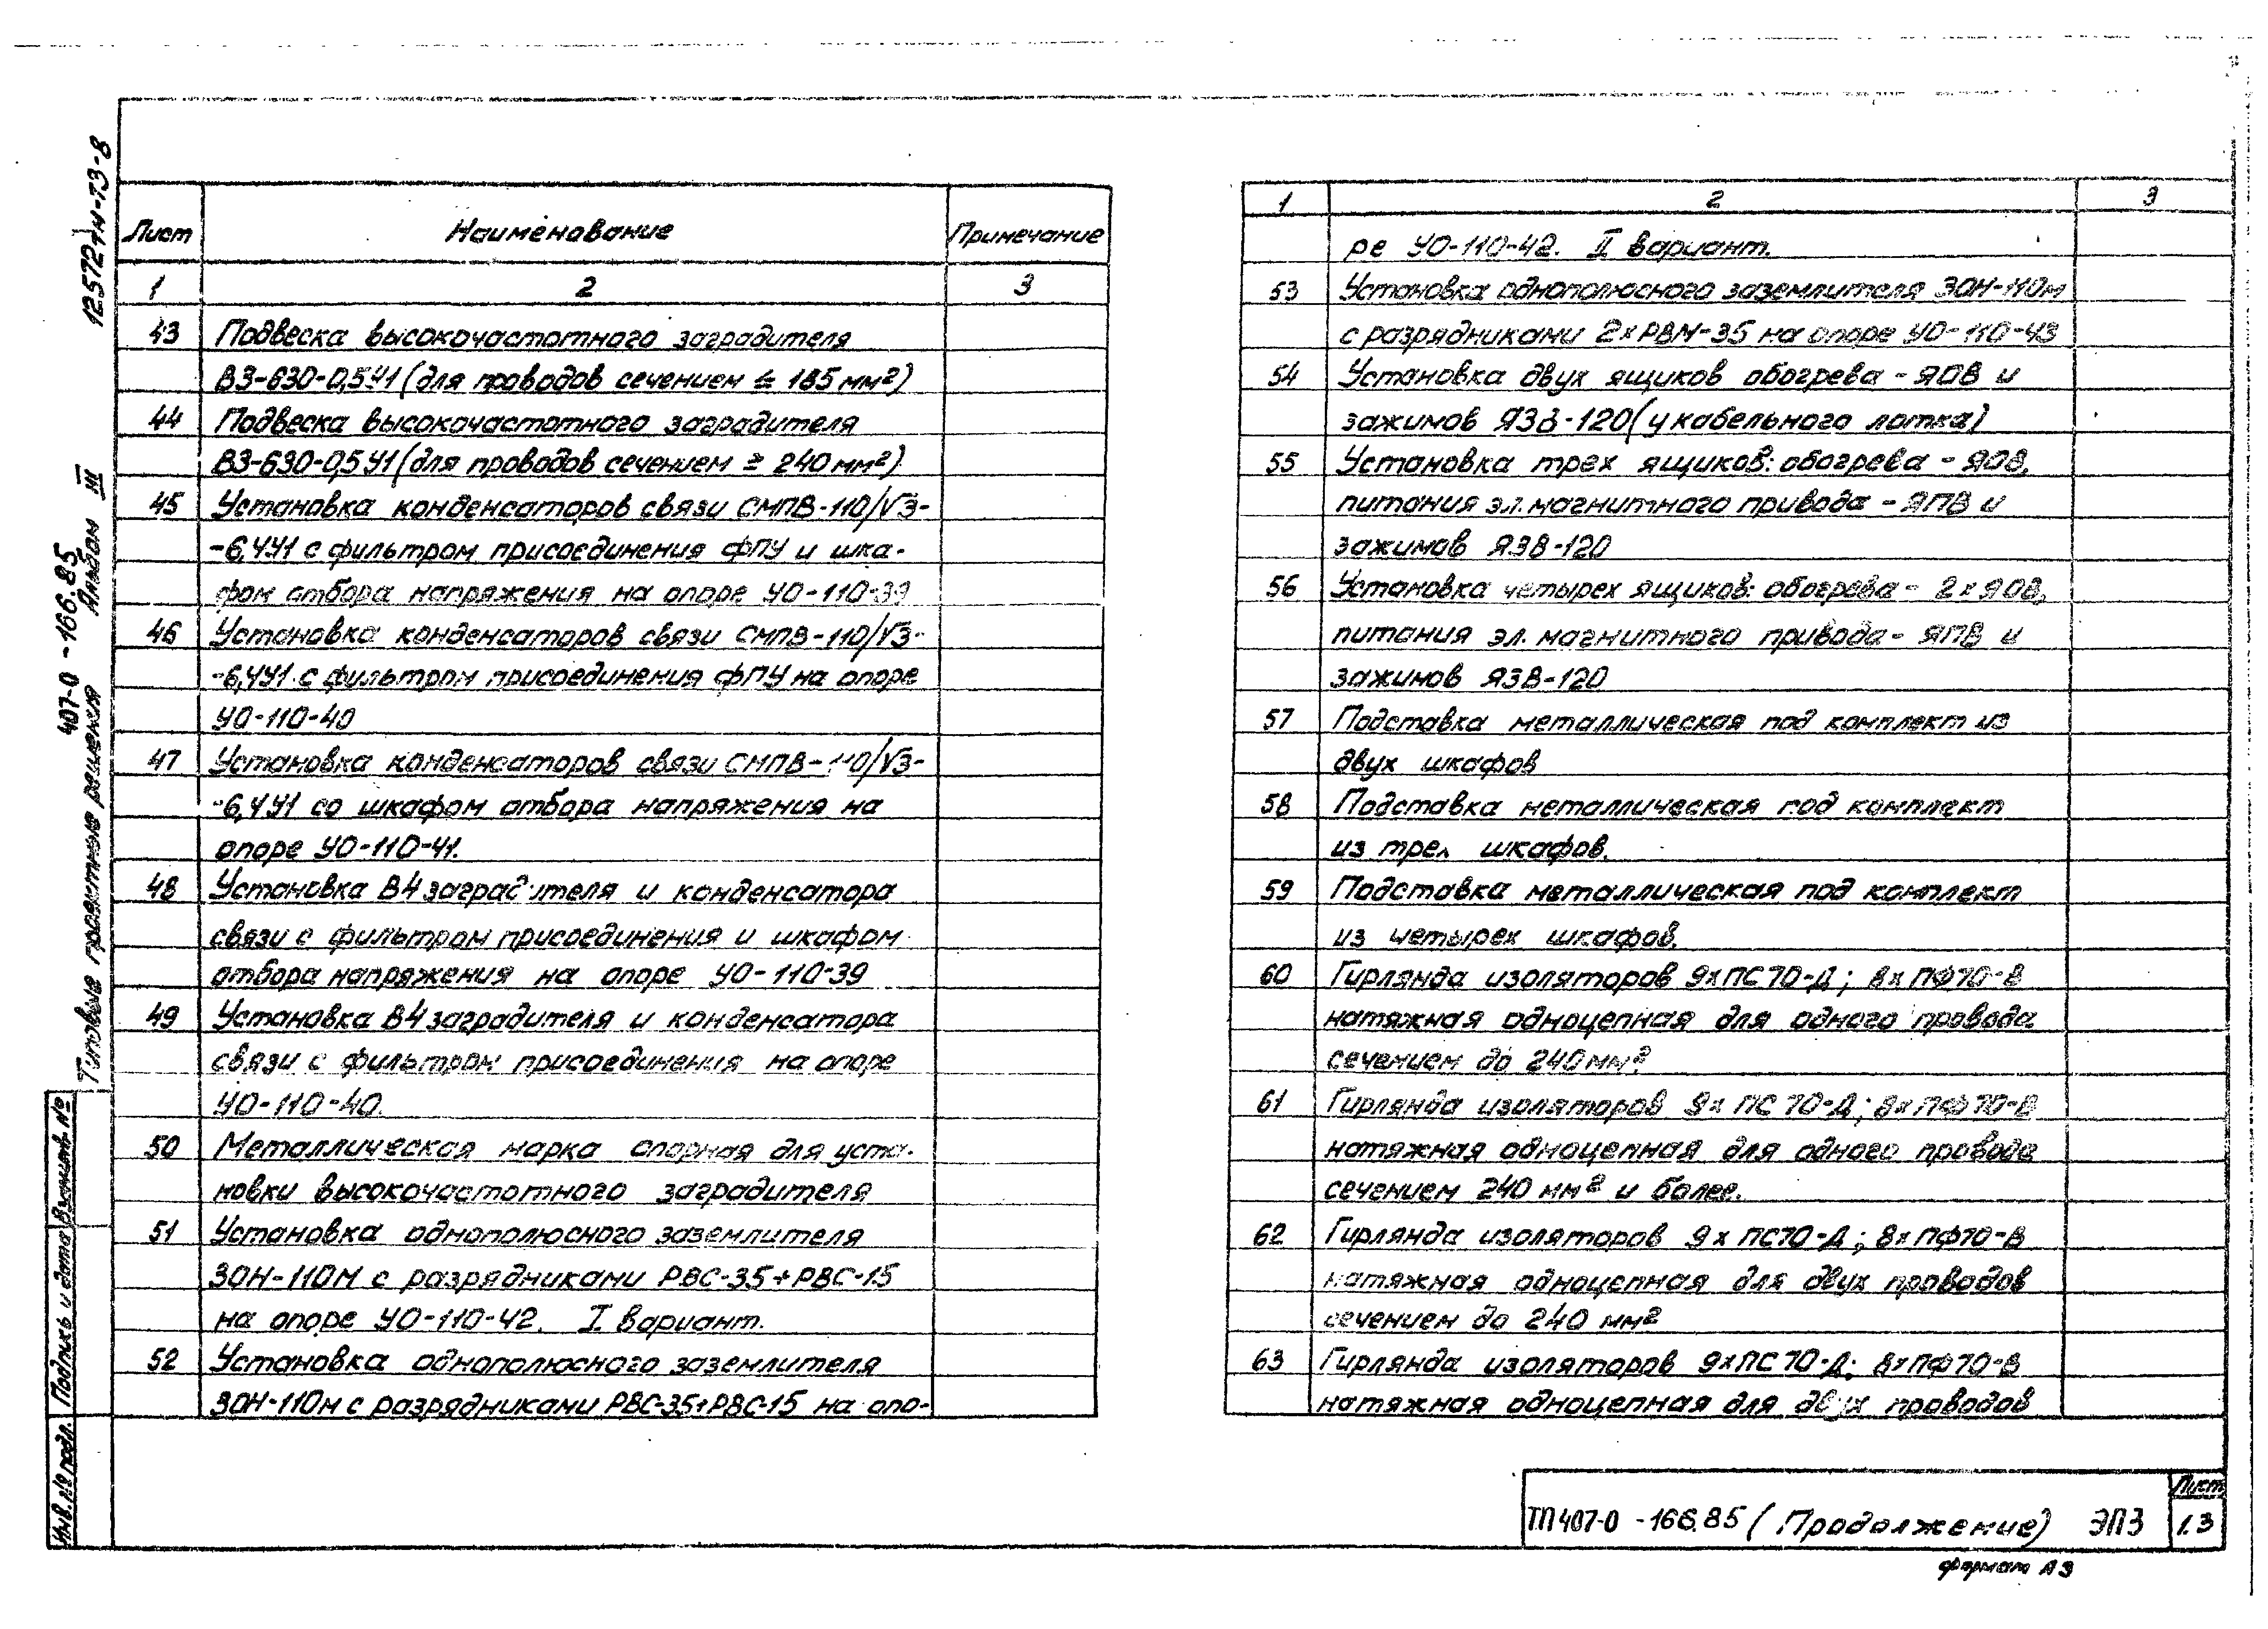 12572тм-т3-8
407-0-166.85
Альбом III
Типовые проектные решения
Взам.инв.№
Подпись и дата
Инв.№ подл.
Лист Наименование Примечание
1 2 3
43 Подвеска высокочастотного заградителя
ВЗ-630-0,5У1 (для проводов сечением ≤ 185 мм²)
44 Подвеска высокочастотного заградителя
ВЗ-630-0,5У1 (для проводов сечением ≥ 240 мм²)
45 Установка конденсаторов связи СМПВ-110/√3-
-6,4У1 с фильтром присоединения ФПУ и шка-
фом отбора напряжения на опоре УО-110-39
46 Установка конденсаторов связи СМПВ-110/√3-
-6,4У1 с фильтром присоединения ФПУ на опоре
УО-110-40
47 Установка конденсаторов связи СМПВ-110/√3-
-6,4У1 со шкафом отбора напряжения на
опоре УО-110-41.
48 Установка ВЧ заградителя и конденсатора
связи с фильтром присоединения и шкафом
отбора напряжения на опоре УО-110-39
49 Установка ВЧ заградителя и конденсатора
связи с фильтром присоединения на опоре
УО-110-40.
50 Металлическая марка опорная для уста-
новки высокочастотного заградителя
51 Установка однополюсного заземлителя
ЗОН-110М с разрядниками РВС-35+РВС-15
на опоре УО-110-42. I вариант.
52 Установка однополюсного заземлителя
ЗОН-110м с разрядниками РВС-35+РВС-15 на опо-
1 2 3
ре УО-110-42. II вариант.
53 Установка однополюсного заземлителя ЗОН-110м
с разрядниками 2хРВМ-35 на опоре УО-110-43
54 Установка двух ящиков обогрева - ЯОВ и
зажимов ЯЗВ-120 (у кабельного лотка)
55 Установка трех ящиков: обогрева - ЯОВ,
питания эл. магнитного привода - ЯПВ и
зажимов ЯЗВ-120
56 Установка четырех ящиков: обогрева - 2хЯОВ,
питания эл. магнитного привода - ЯПВ и
зажимов ЯЗВ-120
57 Подставка металлическая под комплект из
двух шкафов
58 Подставка металлическая под комплект
из трех шкафов.
59 Подставка металлическая под комплект
из четырех шкафов.
60 Гирлянда изоляторов 9хПС70-Д; 8хПФ70-В
натяжная одноцепная для одного провода
сечением до 240 мм²
61 Гирлянда изоляторов 9х ПС 70-Д; 8хПФ70-В
натяжная одноцепная для одного провода
сечением 240 мм² и более.
62 Гирлянда изоляторов 9х ПС70-Д; 8хПФ70-В
натяжная одноцепная для двух проводов
сечением до 240 мм²
63 Гирлянда изоляторов 9хПС70-Д; 8хПФ70-В
натяжная одноцепная для двух проводов
ТП407-0-166.85 (Продолжение) ЭП3
Лист
1.3
формат А3